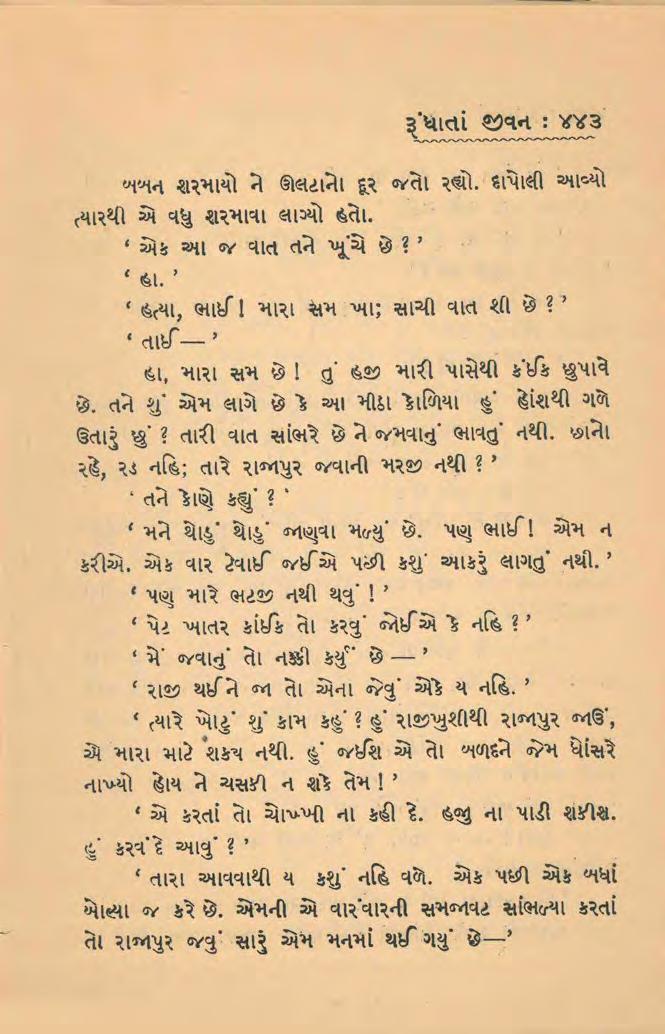 રૂંધાતાં જીવન : ૪૪૩
બબન શરમાયો ને ઊલટાનો દૂર જતો રહ્યો. દાપોલી આવ્યો
ત્યારથી એ વધુ શરમાવા લાગ્યો હતો.
‘ એક આ જ વાત તને ખૂંચે છે ? ’
‘ હા. ’
‘ હત્યા, ભાઈ ! મારા સમ ખા; સાચી વાત શી છે ? ’
‘ તાઈ — ’
હા, મારા સમ છે ! તું હજી મારી પાસેથી કંઈક છુપાવે
છે. તને શું એમ લાગે છે કે આ મીઠા કોળિયા હું હોંશથી ગળે
ઉતારું છું ? તારી વાત સાંભરે છે ને જમવાનું ભાવતું નથી. છાનો
રહે, રડ નહિ; તારે રાજાપુર જવાની મરજી નથી ? ’
‘ તને કોણે કહ્યું ? ‘
‘ મને થોડું થોડું જાણવા મળ્યું છે. પણ ભાઈ ! એમ ન
કરીએ. એક વાર ટેવાઈ જઈએ પછી કશું આકરું લાગતું નથી. ’
‘ પણ મારે ભટજી નથી થવું ! ’
‘ પેટ ખાતર કાંઈક તો કરવું જોઈએ કે નહિ ? ’
‘ મેં જવાનું તો નક્કી કર્યું છે — ’
‘ રાજી થઈને જા તો એના જેવું એકે ય નહિ. ’
‘ ત્યારે ખોટું શું કામ કહું ? હું રાજીખુશીથી રાજાપુર જાઉં,
એ મારા માટે શકય નથી. હું જઈશ એ તો બળદને જેમ ધોંસરે
નાખ્યો હોય ને ચસકી ન શકે તેમ ! ’
‘ એ કરતાં તો ચોખ્ખી ના કહી દે. હજુ ના પાડી શકીશ.
હું કરવંદે આવું ? ’
‘ તારા આવવાથી ય કશું નહિ વળે. એક પછી એક બધાં
બોલ્યા જ કરે છે. એમની એ વારંવારની સમજાવટ સાંભળ્યા કરતાં
તો રાજાપુર જવું સારું એમ મનમાં થઈ ગયું છે—’